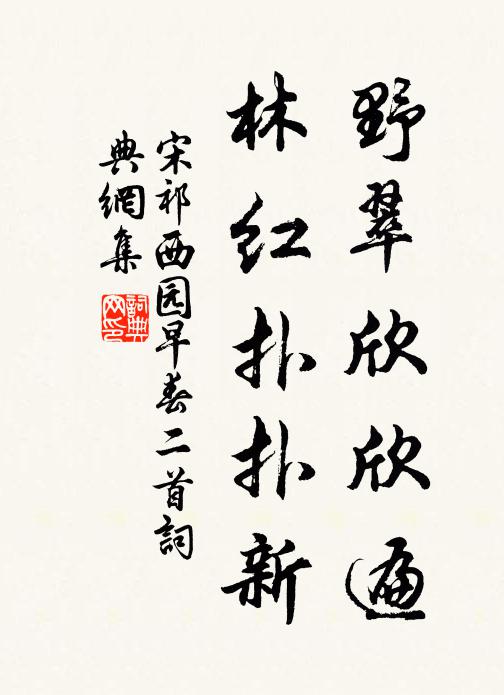 野翠欣欣遍
林红扑扑新
宋祁西园早春二首詞
典網集
詞典
网印